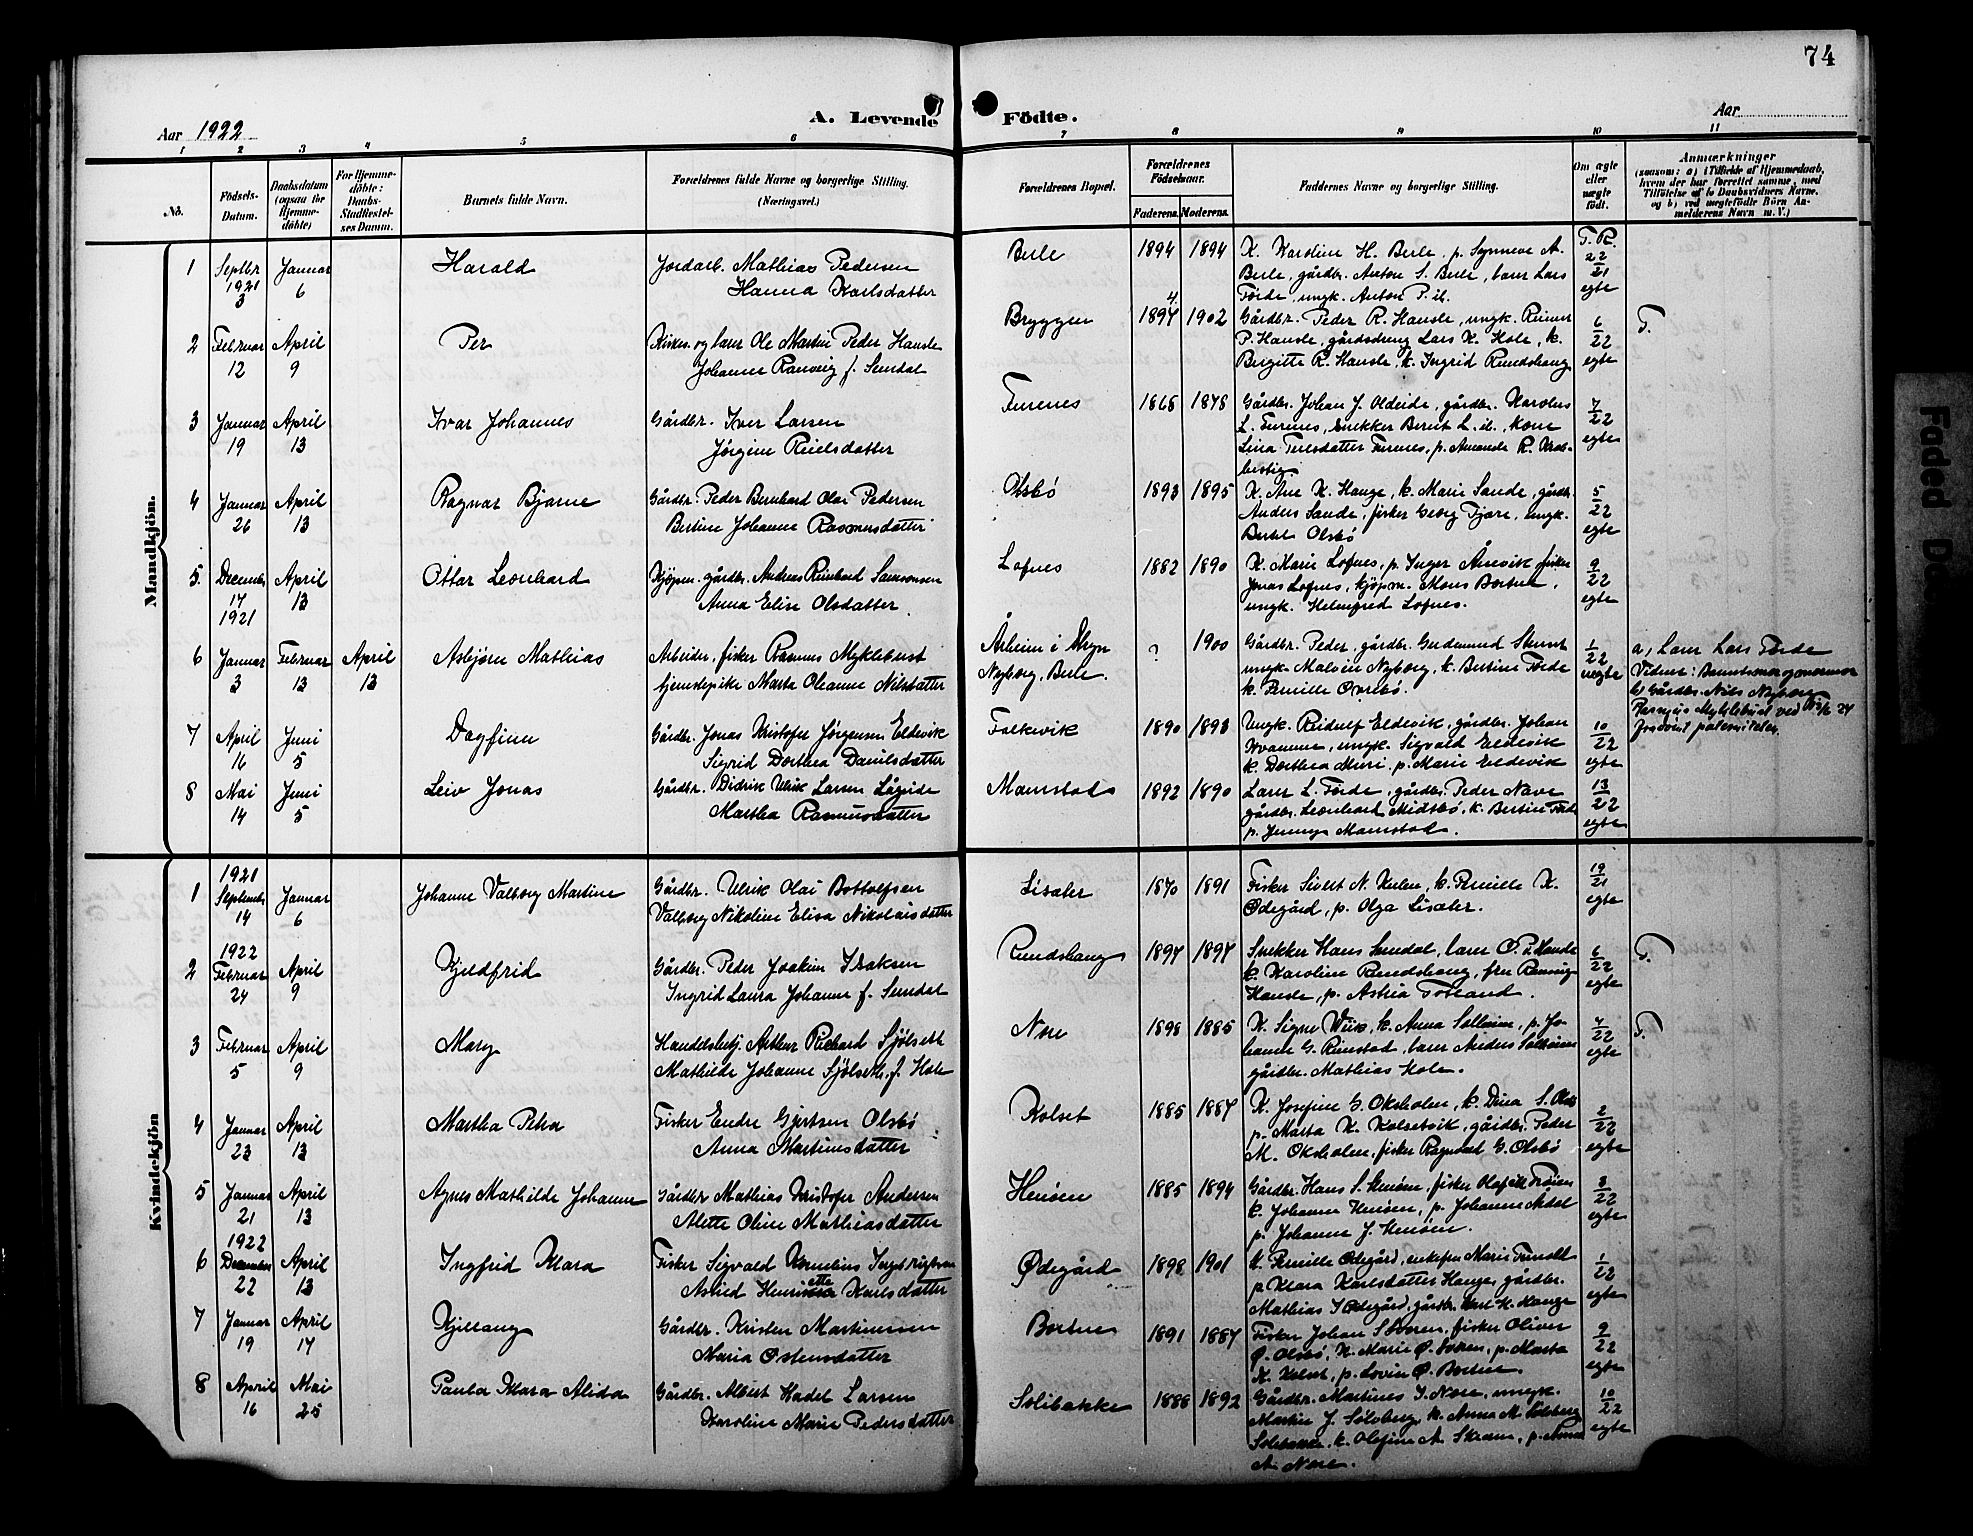 74
Aar 1922
A. Levende Födte.
Aar
1 2 3 4 5 6 7 8 9 10 11
No.
Födsels-
Datum.
Daabsdatum
(ogsaa for
Hjemme-
döbte)
For Hjemme-
döbte:
Daabs-
Stadfæstel-
ses Datum.
Barnets fulde Navn.
Forældrenes fulde Navne og borgerlige Stilling.
(Næringsvei.)
Forældrenes Bopæl.
Forældrenes
Födselsaar.
Faderens. Moderens.
Faddernes Navne og borgerlige Stilling.
Om ægte
eller
uægte
født.
Anmærkninger
(saasom: a) i Tilfælde af Hjemmedaab,
hvem der har forrettet samme, med
Tilföielse af to Daabsvidners Navne,
og b) ved uægtefödte Börn An-
melderens Navn m. V.)
Mandkjön.
1 Septbr 1921 3 Januar 6 Harald
Jordarb. Mathias Pedersen
Hanna Karlsdatter
Berle 1894 1894
K. Karoline H. Berle, p. Synneve A.
Berle, gårdbr. Anton S. Berle, lærer Lars
Förde, ungk. Anton P. ib.
T. R. 22/21 egte
2 Februar 12 April 9 Per
Kirkes. og lærer Ole Martin Peder Hausle
Johanne Ranveig f. Sundal
Bryggen 1894 1902
Gårdbr. Peder R. Hausle, ungk. Reimer
P. Hausle, gårdsdreng Lars K. Hole, k.
Brigitte R. Hausle, k. Ingrid Rundshaug
6/22 egte T.
3 Januar 19 April 13 Ivar Johannes
Gårdbr. Iver Larsen
Jørgine Reielsdatter
Furenes 1868 1878
Gårdbr. Johan J. Oldeide, gårdbr. Karolus
L. Furenes, snekker Bernt L. ib., kone
Lina Terlsdatter Furenes, p. Amanda R.
7/22 egte
4 Januar 26 April 13 Ragnar Bjarne
Gårdbr. Peder Bernhard Olai Pedersen
Bertine Johanne Rasmusdatter
Olsbö 1893 1895
K. Ane K. Hauge, k. Marie Sande, gårdbr.
Anders Sande, fisker Georg Fjære, ungk.
Bertel Olsbö
5/22 egte
5. December 17 1921 April 13 Ottar Leonhard
Kjöpm. gårdbr. Andreas Reinhard Samsonsen
Anna Elise Olsdatter
Lofnes 1882 1890
K. Marie Lofnes, p. Inger Årsvik, fisker
Jonas Lofnes, kjøpm. Mons Bortne,
ungk. Helmfred Lofnes.
9/22 egte
6 Januar 3 Februar 13 April 13 Asbjørn Mathias
Arbeider, fisker Rasmus Myklebust
tjenestepike Marta Oleanne Nilsdatter
Årheim i Stryn
Nyborg, Berle.
? 1900
Gårdbr. Peder, gårdbr. Gudmund
ungk. Malvin Nyborg, k. Bertine Förde
k. Pernille Övrebø.
1/22 uegte
a, Lærer Lars Förde
Vidner: Barnets mor og mormor
b, Gårdbr. Nils Nyborg
Rasmus Myklebust ved
idømt paterniteten.
7 April 16 Juni 5 Dagfinn
Gårdbr. Jonas Kristofer Jørgensen Eldevik
Sigrid Dorthea Danilsdatter
Falkevik 1890 1893
Ungk. Reidulf Eldevik, gårdbr. Johan
Kvamme, ungk. Sigvald Eldevik
k. Dorthea Muri, p. Marie Eldevik
10/22 egte
8 Mai 14 Juni 5 Leiv Jonas
Gårdbr. Didrik Ulrik Larsen Lågeide
Martha Rasmusdatter
Maurstad 1892 1890
Lærer L. Förde, gårdbr. Peder Nave
gårdbr. Leonhard Midtbö, k. Bertine Förde
p. Jenny Maurstad.
13/22 egte
Kvindekjön
1 1921 September 14 Januar 6 Johanne Valborg Martine
Gårdbr. Ulrik Olai Bottolfsen
Valborg Nikoline Elisa Nikolaisdatter
Lisæter 1870 1891
Fisker Sivert N. Kulen, k. Pernille K.
Ødegård, p. Olga Lisæter.
19/21 egte
2 1922 Februar 24 April 9 Kjeldfrid
Gårdbr. Peder Joakim Isaksen
Ingrid Laura Johanne f. Sundal
Rundshaug 1897 1897
Snekker Hans Sundal, lærer O. P. Hausle
k. Karoline Rundshaug, fru Ranveig
Hausle, p. Astria Totland.
6/22 egte T.
3 Februar 5 April 9 Mary
Handelsbetj. Arthur Richard Sjölseth
Mathilde Johanne Sjölseth, f. Hole
Nore 1898 1885
K. Signe Wiik, k. Anna Solheim, p. Jo-
hanne G. Rimstad, lærer Anders Solheim
gårdbr. Mathias Hole.
4/22 egte T.
4 Januar 23 April 13 Martha Petra
Fisker Endre Gjertsen Olsbö
Anna Martinusdatter
Kolset 1885 1887
K. Josefine G. Oksholen, k. Dina S. Olsb
p. Marta K. Kolsetvik, gårdbr. Peder
M. Oksholen, fisker Ragnvald G. Olsbö
2/22 egte
5 Januar 21 April 13 Agnes Mathilde Johanne
Gårdbr. Mathias Kristofer Andersen
Alette Oline Mathiasdatter
Henöen 1885 1894
Gårdbr. Hans S. Henöen, fisker Olaf
k. Johanne Henöen, p. Johanne Aadal
p. Johanne J. Henöen.
3/22 egte
6 1922 December 22 April 13 Ingfrid Klara
Fisker Sigvald Kornelius Ingebrigtsen
Astrid Henriette Karlsdatter
Ødegård 1898 1901
k. Pernille Ødegård, enkefru Marie
p. Klara Karlsdatter Hauge, gårdbr.
Mathias I Ødegård, gårdbr. Karl K. Hauge
1/22 egte
7 Januar 19 April 17 Kjellaug
Gårdbr. Kristen Martinussen
Maria Ostensdatter
Bortne 1891 1887
Fisker Johan Søvoren, fisker Oliver
Ø. Olsbö, K. Marie Ø. p. Marta
K. Kolset, p. Lovise Ø. Bortne
9/22 egte
8 April 16 Mai 25 Paula Klara Alida
Gårdbr. Albert Kadel Larsen
Karoline Marie Pedersdatter
Solibakke 1888 1892
Gårdbr. Martines I. Nore, ungk.
Martin J. Solsberg, k. Anna M. Solsberg
Solibakke, k. Olefine A. Skram, p. Anna
A. Nore.
10/22 egte
Faded D